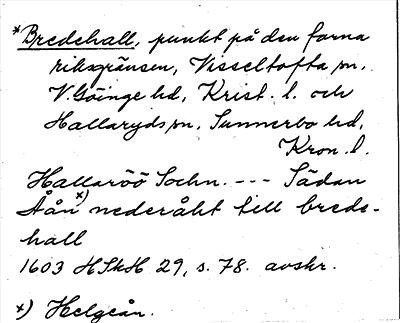 *Bredehall, punkt på den forna
riksgränsen, Visseltofta sn,
V. Göinge hd, Krist. l. och
Hallaryds sn, Sunnerbo hd,
Kron. l.
Hallaröö Sochn. --- Sädan
Åån x) nederåht till brede-
hall
1603 HSkH 29, s. 78. avskr.
x) Helgeån.